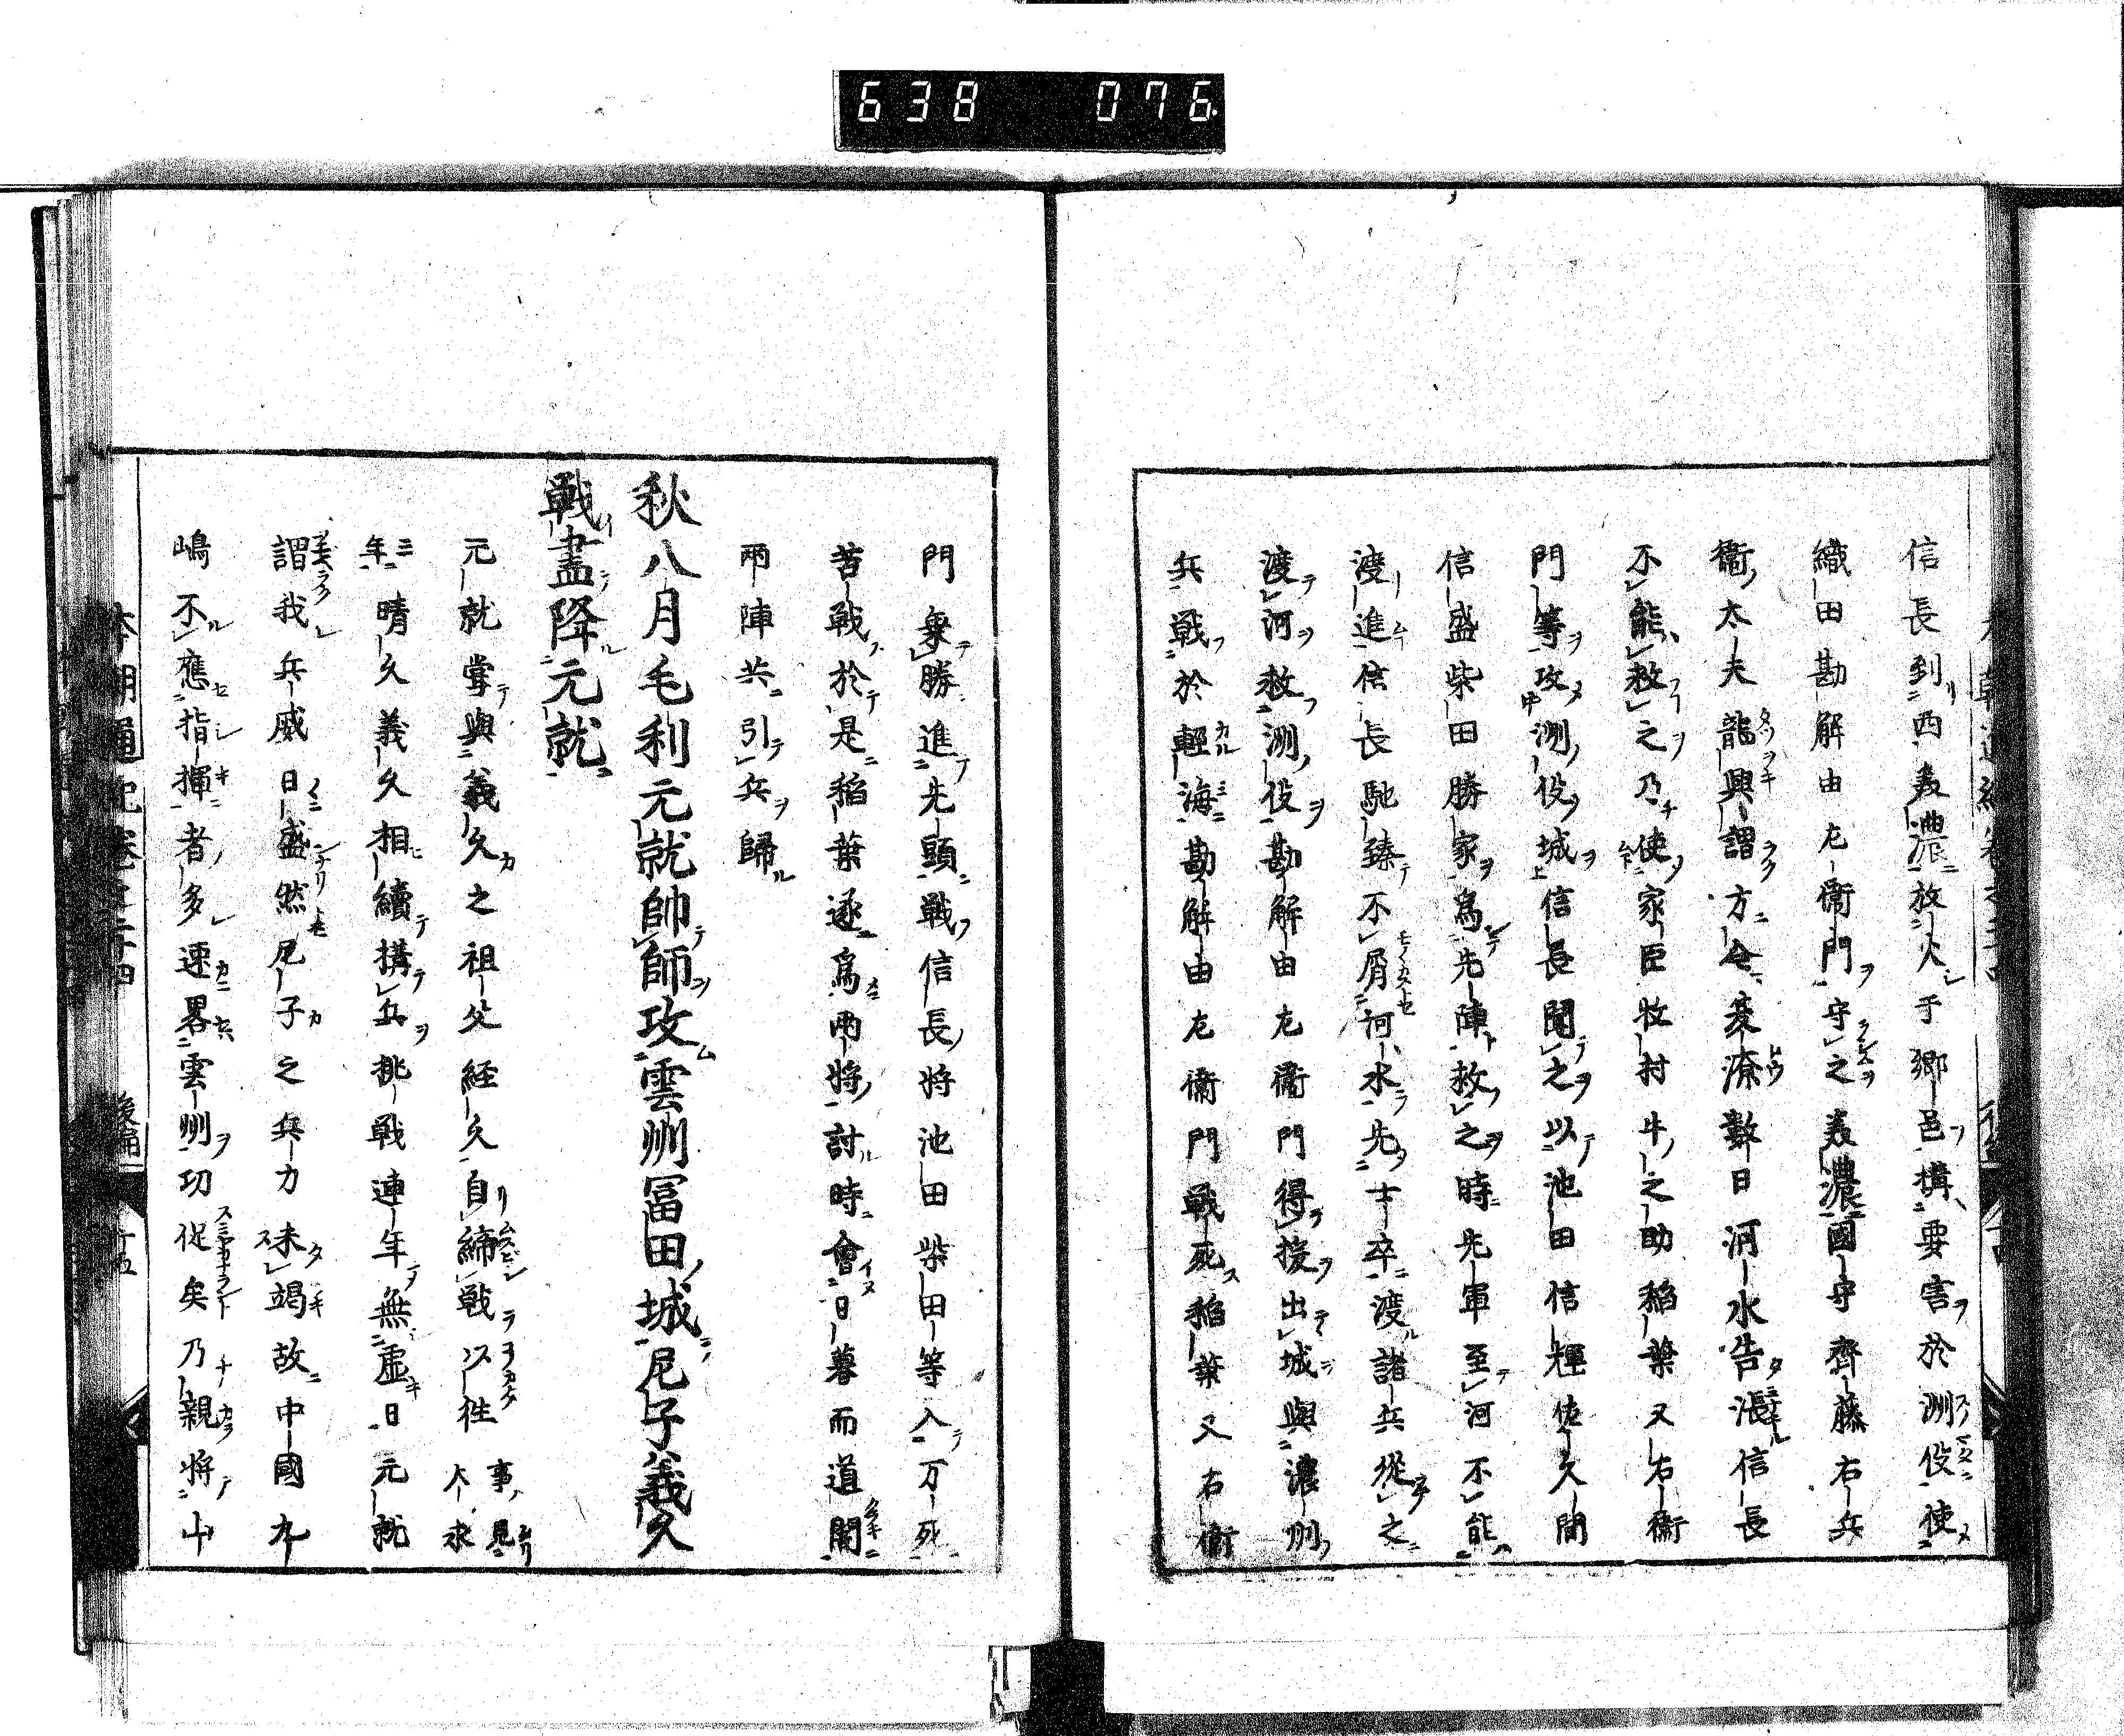 638 076
信長到西美濃放火于郷邑搆要害於洲役使
織田勘解由左衞門守之美濃國守齊藤右兵
衞太夫龍興謂方令菱潦數日河水告漲信長
不能救之乃使家臣牧村牛之助稲葉又右衞
門等攻洲役城信長聞之以池田信輝佐久間
信盛柴田勝家爲先陣救之時先軍至河不能
渡進信長馳臻不屑河水先士卒渡諸兵從之
渡河救洲役勘解由左衞門得援出城與濃州
兵戦於輕海勘解由左衞門戦死稲葉又右衞
門衆勝進先頭戦信長將池田柴田等入万死
苦戦於是稲葉逐爲兩將討時會日暮而道闇
兩陣共引兵歸
秋八月毛利元就帥師攻雲州冨田城尼子義久
戰盡降元就
元就掌與義久之祖父経久自締戦以徃事見大永
三年晴久義久相續搆兵挑戦連年無虚日元就
謂我兵威日盛然尼子之兵力未竭故中國九
嶋不應指揮者多速畧雲州功促矣乃親將山
本朝通紀巻 後編